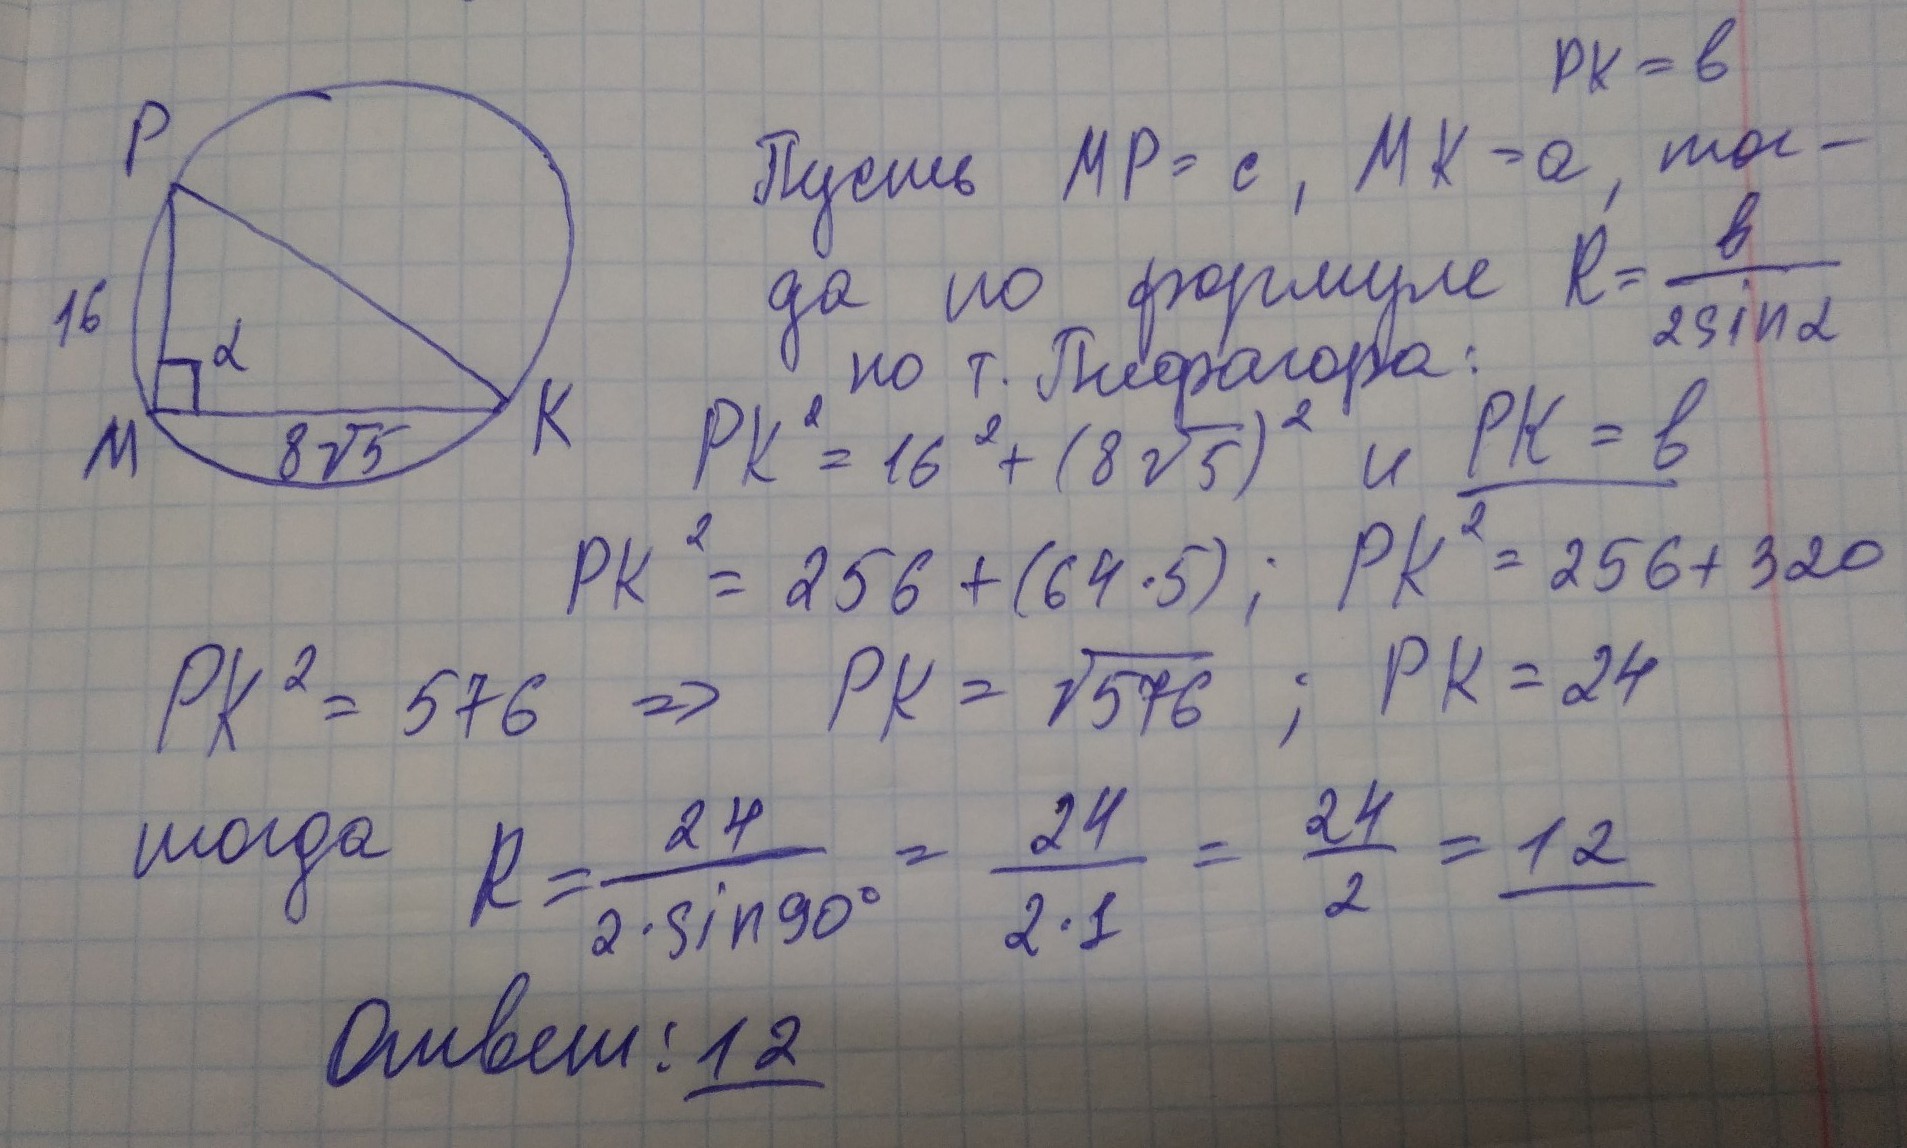 PK = в
P
Пусть MP = c, MK = a, тог-
да по формуле R = в / 2sinα
16
α
по т. Пифагора:
M
8√5
K
PK² = 16² + (8√5)² и PK = в
PK² = 256 + (64·5); PK² = 256 + 320
PK² = 576 => PK = √576; PK = 24
тогда R = 24 / 2·sin90° = 24 / 2·1 = 24 / 2 = 12
Ответ: 12